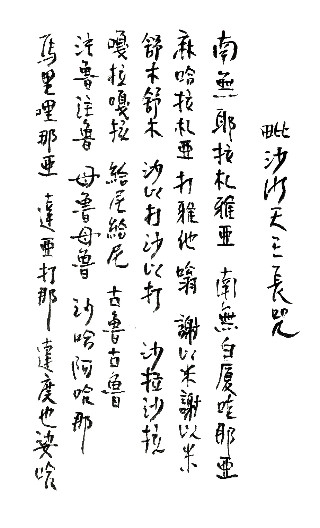 毗沙門天王長咒
南無 耶拉札雅亞 南無白厦哇那亞
麻哈拉札亞 打雅他 嗡 謝以米謝以米
舒木舒木 沙以打沙以打 沙拉沙拉
嘎拉嘎拉 給尼給尼 古魯古魯
注魯注魯 母魯母魯 沙哈阿哈那
馬里哩那亞 達亞打那 達度也娑哈